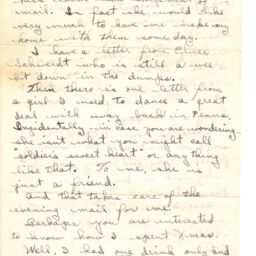 mail. In fact she would like
very much to have me make my
home with them some day.
I have a letter from Elmer
Schwerdt who is still a wee
bit down in the dumps.
Then there is one letter from
a girl I used to dance a great
deal with way back in Penna.
Incidentally in case you are wondering
she isn't what you might call
soldier's sweet heart or any thing
like that. To me, she is
just a friend.
And that takes care of the
evening mail for me.
Perhaps you are interested
to know how I spent X-mas.
Well, I had one drink only and